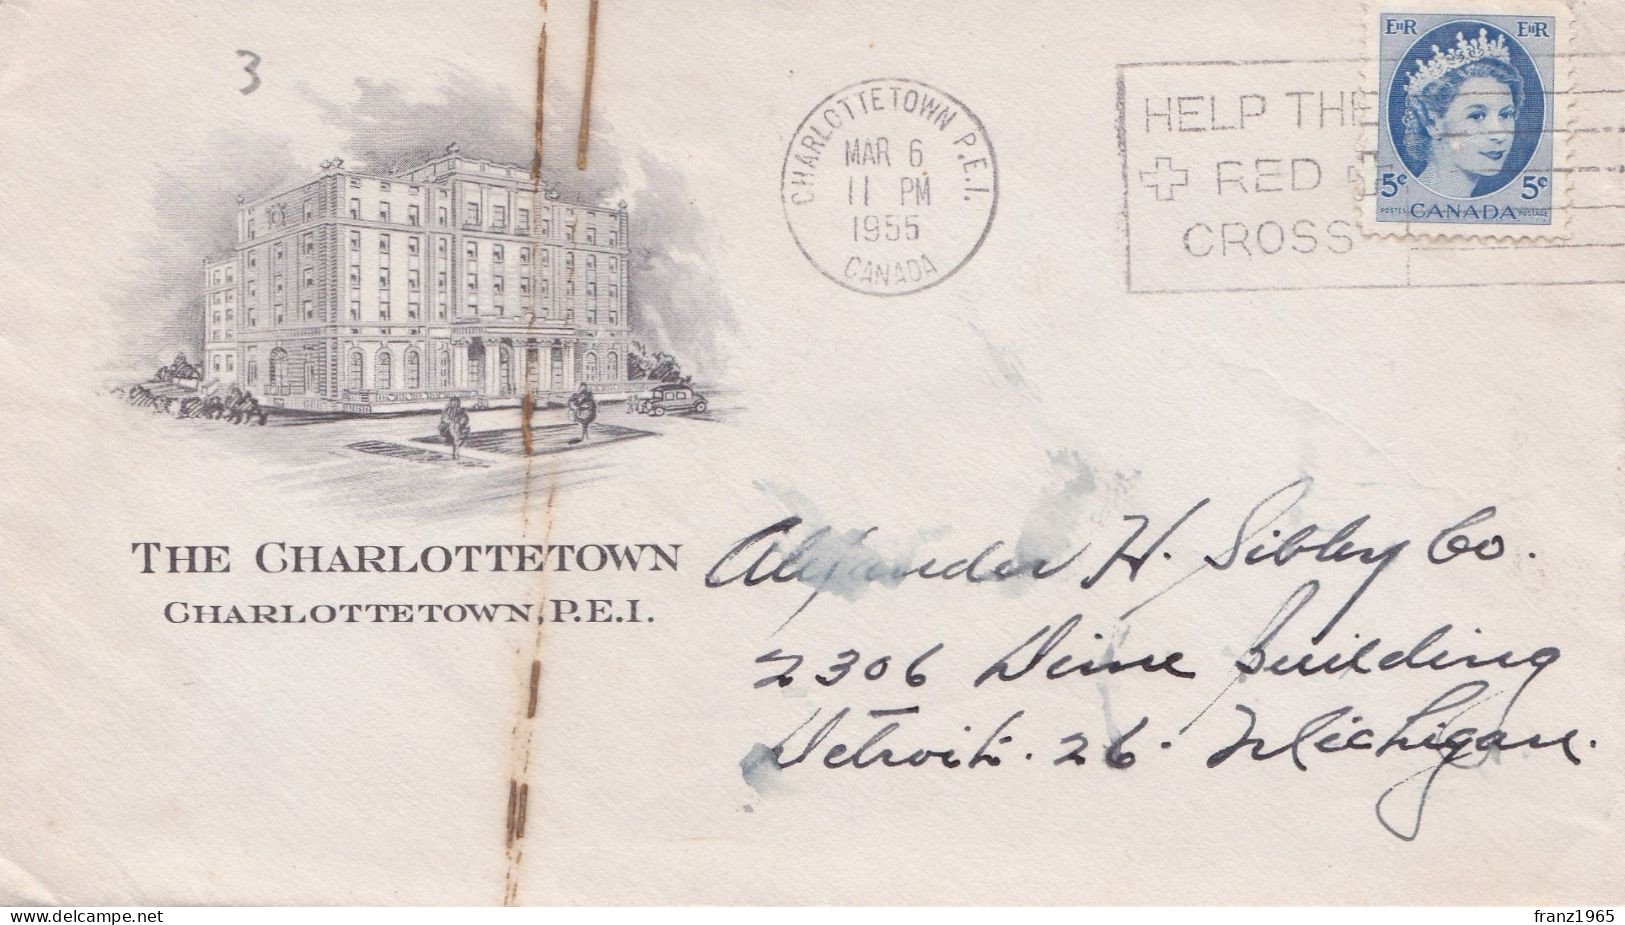 3
CHARLOTTETOWN P.E.I.
MAR 6
11 PM
1955
CANADA
HELP THE
RED
CROSS
EIIR EIIR
5¢ 5¢
POSTES CANADA POSTAGE
THE CHARLOTTETOWN
CHARLOTTETOWN, P.E.I.
Alexander H. Sibley Co.
2306 Dime Building
Detroit. 26. Michigan.
www.delcampe.net
franz1965